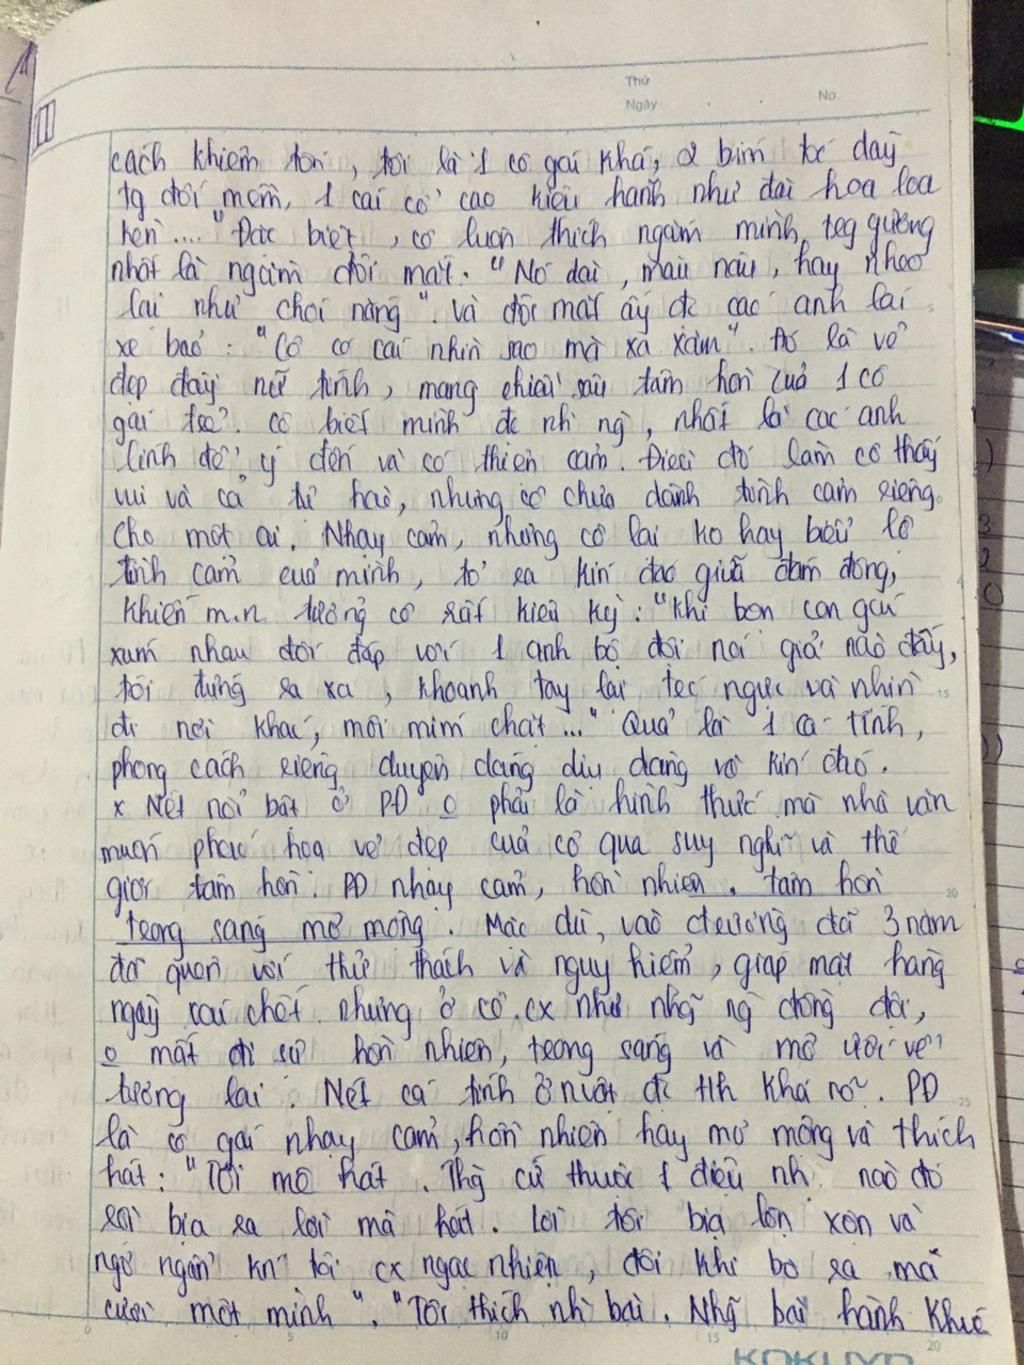 Thứ
Ngày No.
cách khiêm tốn, tôi là 1 cô gái khá, 2 bím tóc dày
tg đối mềm, 1 cái cổ cao kiêu hãnh như đài hoa loa
kèn.... "Đặc biệt, cô luôn thích ngắm mình trg gương
nhất là ngắm đôi mắt. "Nó dài, màu nâu, hay nheo
lại như chói nắng". Và đôi mắt ấy đc các anh lái
xe bảo: "Cô có cái nhìn sao mà xa xăm". Đó là vẻ
đẹp đầy nữ tính, mang chiều sâu tâm hồn của 1 cô
gái trẻ. Cô biết mình đc nh ng, nhất là các anh
lính để ý đến và có thiện cảm. Điều đó làm cô thấy
vui và cả tự hào, nhưng cô chưa dành tình cảm riêng
cho một ai. Nhạy cảm, nhưng cô lại ko hay biểu lộ
tình cảm của mình, tỏ ra kín đáo giữa đám đông,
khiến m.n tưởng cô rất kiêu kỳ: "khi bọn con gái
xúm nhau đối đáp với 1 anh bộ đội nói giỏi nào đấy,
tôi đứng ra xa, khoanh tay lại trc ngực và nhìn
đi nơi khác, môi mím chặt..." Quả là 1 cá tính,
phong cách riêng duyên dáng dịu dàng và kín đáo.
x Nét nổi bật ở PĐ o phải là hình thức mà nhà văn
muốn phác họa vẻ đẹp của cô qua suy nghĩ và thế
giới tâm hồn. PĐ nhạy cảm, hồn nhiên, tâm hồn
trong sáng mơ mộng. Mặc dù, vào chương đã 3 năm
đã quen với thử thách và nguy hiểm, giáp mặt hàng
ngày với chết nhưng ở cô cx như nhg ng đồng đội,
o mất đi sự hồn nhiên, trong sáng và mơ ước về
tương lai. Nét cá tính ở n.vật đc th khá rõ. PĐ
là cô gái nhạy cảm, hồn nhiên hay mơ mộng và thích
hát: "Tôi mê hát. Thg cứ thuộc 1 điệu nh nào đó
rồi bịa ra lời mà hát. Lời tôi bịa lộn xộn và
ngớ ngẩn kn tôi cx ngạc nhiên, đôi khi bò ra mà
cười một mình". "Tôi thích nh bài. Nhg bài hành khúc
5 10 15 20
KOKUYO